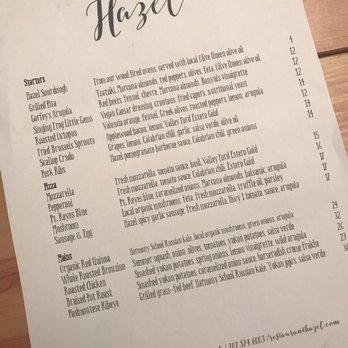 Hazel
Starters
Hazel Sourdough From our wood fired ovens, served with local Olive Queen olive oil 4
Grilled Pita Tzatziki, Marcona almonds, red peppers, olives, feta, Olive Queen olive oil 12
Gorfey's Arugula Red beets, fennel, chevre, Marcona almonds, Banyuls vinaigrette 12
Singing Frog Little Gems Vegan Caesar dressing, croutons, fried capers, nutritional yeast 12
Roasted Octopus Valencia orange, fennel, Greek olives, roasted peppers, lemon, arugula 14
Fried Brussels Sprouts Applewood bacon, lemon, Valley Ford Estero Gold 12
Scallop Crudo Grapes, lemon, Calabrian chili, garlic, salsa verde, olive oil 14
Pork Ribs Hazel pomegranate barbecue sauce, Calabrian chili, green onions 14
Pizza
Mozzarella Fresh mozzarella, tomato sauce, basil, Valley Ford Estero Gold 15
Pepperoni Fresh mozzarella, tomato sauce, Valley Ford Estero Gold 16
Pt. Reyes Blue Pt. Reyes blue, caramelized onions, Marcona almonds, balsamic, arugula 17
Mushroom Local organic mushrooms, feta, fresh mozzarella, truffle oil, parsley 17
Sausage & Egg Hazel spicy garlic sausage, fresh mozzarella, tomato sauce, arugula
Mains
Organic Red Quinoa Harmony School Russian kale, local organic mushrooms, green onions, arugula 24
Whole Roasted Bronzino Summer squash, onion, olives, tomatoes, yukon potatoes, salsa verde 32
Roasted Chicken Smashed yukon potatoes, spring onions, lemon vinaigrette, wild arugula
Braised Pot Roast Smashed yukon potatoes, caramelized onion sauce, horseradish crème fraîche
Piedmontese Ribeye Grilled grass-fed beef, Harmony School Russian kale, Yukon potatoes, salsa verde
/ 707.874.6003 / restauranthazel.com